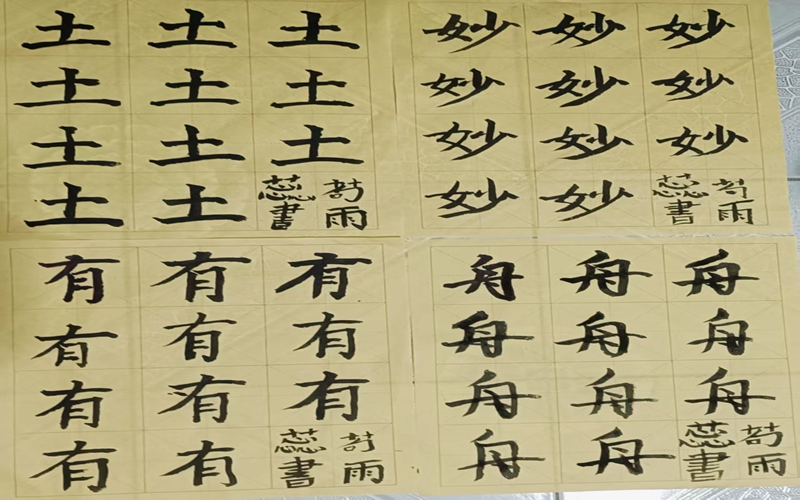 土土土
土土土
土土土
土土
雨
蕊書
妙妙妙
妙妙妙
妙妙妙
妙妙
雨
蕊書
有有有
有有有
有有有
有有
雨
蕊書
舟舟舟
舟舟舟
舟舟舟
舟舟
雨
蕊書